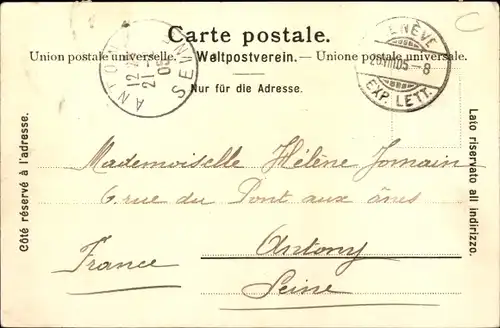 Carte postale.
Union postale universelle. — Weltpostverein. — Unione postale universale.
Nur für die Adresse.
Côté réservé à l'adresse.
Lato riservato all indirizzo.
ANTONY
12
21
05
SEINE
GENÈVE
20.VIII.05–8
EXP. LETT.
C
Mademoiselle Hélène Jomain
6 rue du Pont aux ânes
Antony
France
Seine